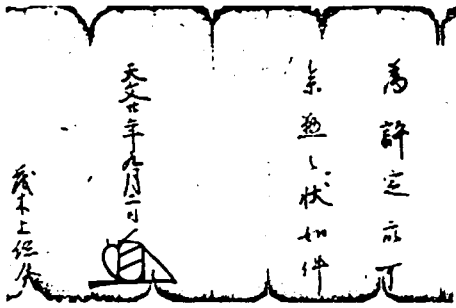 為評定衆可
参懃之状如件
天文廿年九月二日
茂木上総介